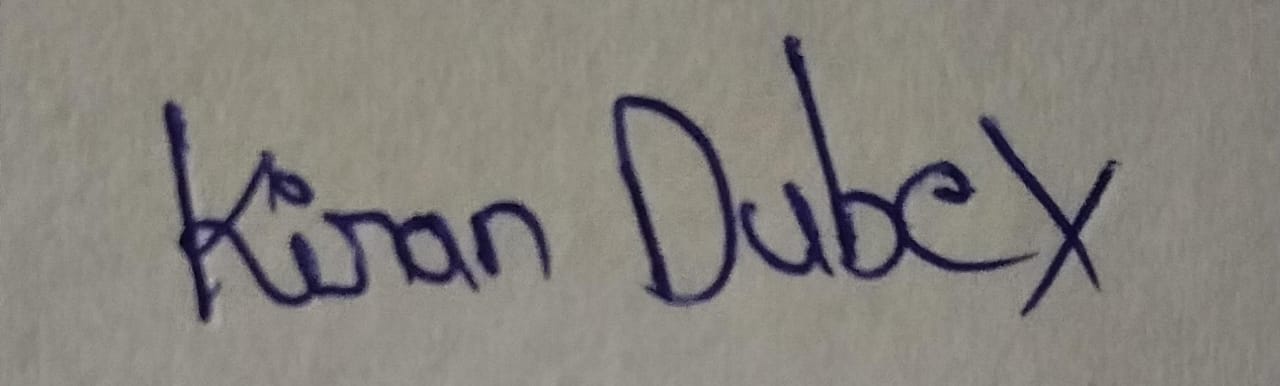 Kiran Dubey